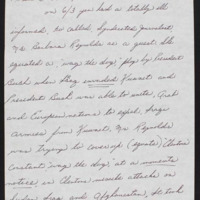 on 6/3 you had a totally ill
informed, so called, syndicated journalist,
Ms Barbara Reynolds as a guest. She
equated a "wag the dog" ploy by President
Bush when they invaded Kuwait and
President Bush was able to unite Arab
and European nations to expel Iraqi
armies from Kuwait. Ms Reynolds
was trying to cover up (equate) Clintons
constant "wag the dog" at a moments
notice, in Clintons missile attacks on
Sudan, Iraq and Afghanistan. It took